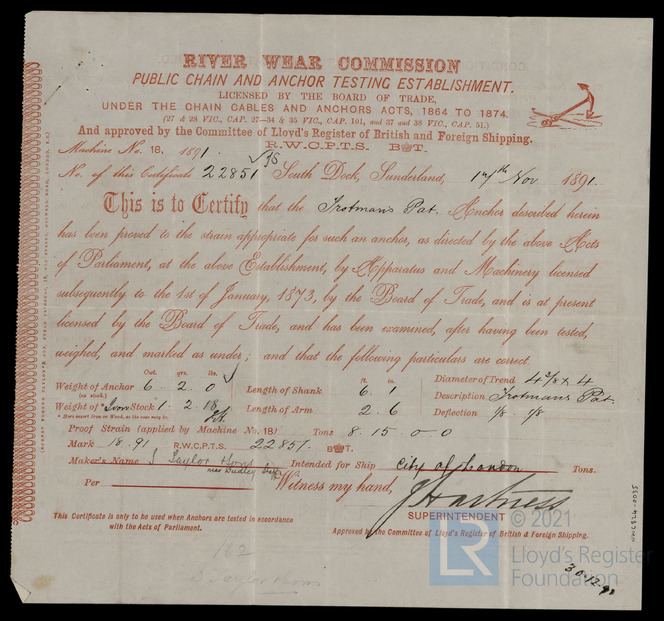 RIVER WEAR COMMISSION
PUBLIC CHAIN AND ANCHOR TESTING ESTABLISHMENT.
LICENSED BY THE BOARD OF TRADE,
UNDER THE CHAIN CABLES AND ANCHORS ACTS, 1864 TO 1874.
(27 & 28 VIC., CAP. 27—34 & 35 VIC., CAP. 101, and 37 and 38 VIC., CAP. 51.)
And approved by the Committee of Lloyd's Register of British and Foreign Shipping.
Machine No. 18, 1891. R.W.C.P.T.S. B T.
No. of this Certificate 22851 South Dock, Sunderland, 17th Nov 1891.
This is to Certify that the Trotman's Pat. Anchor described herein
has been proved to the strain appropriate for such an anchor, as directed by the above Acts
of Parliament, at the above Establishment, by Apparatus and Machinery licensed
subsequently to the 1st of January, 1873, by the Board of Trade, and is at present
licensed by the Board of Trade, and has been examined, after having been tested,
weighed, and marked as under; and that the following particulars are correct.
Cwt. qrs. lbs. ft. in.
Weight of Anchor 6 2 0 Length of Shank 6 1 Diameter of Trend 4 3/8 x 4
(ex stock.)
Description Trotman's Pat.
Weight of *Iron Stock 1 2 18 Length of Arm 2 6 Deflection 1/8 1/8
* Here insert Iron or Wood, as the case may be.
Proof Strain (applied by Machine No. 18) Tons 8 15 0 0
Mark 18.91 R.W.C.P.T.S. 22851. B T.
Maker's Name Taylor & Sons near Dudley Intended for Ship City of London Tons.
Per Witness my hand, J Hartness
SUPERINTENDENT
This Certificate is only to be used when Anchors are tested in accordance
with the Acts of Parliament.
Approved by the Committee of Lloyd's Register of British & Foreign Shipping.
© 2021
LR Lloyd's Register
Foundation
162
30.12.91